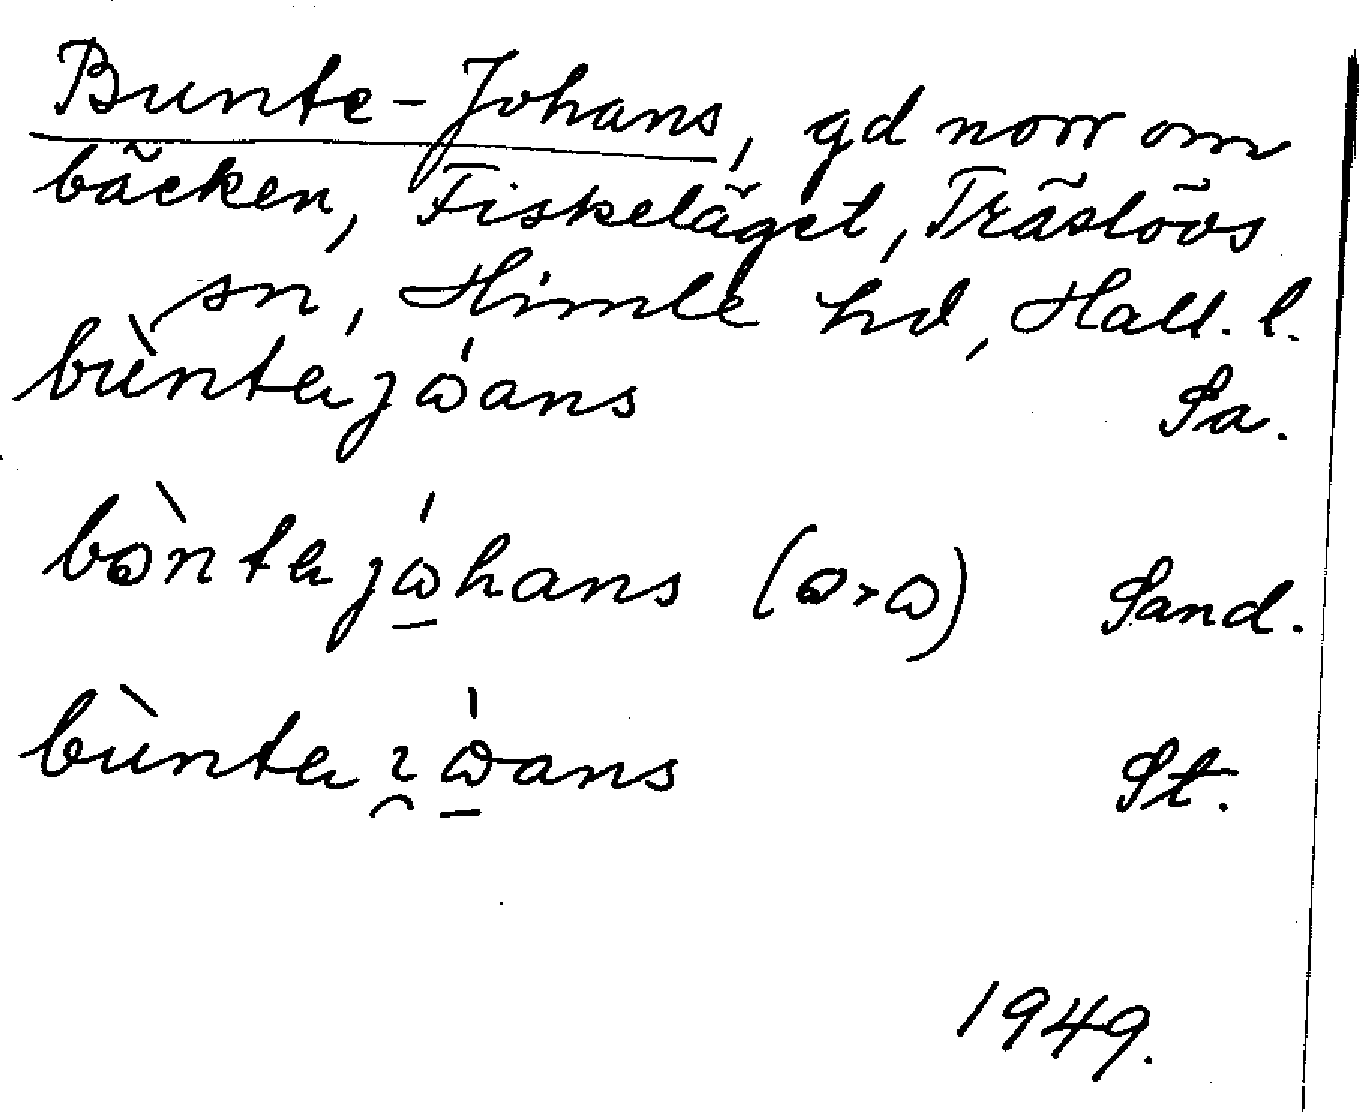 Bunte-Johans, gd norr om
bäcken, Fiskeläget, Träslövs
sn, Himle hd, Hall. l.
bùntaȷɷ́ans Sa.
bꞷ̀ntaȷɷ́hans (ꞷ>ɷ) Sand.
bùntaɷ́ans St.
1949.